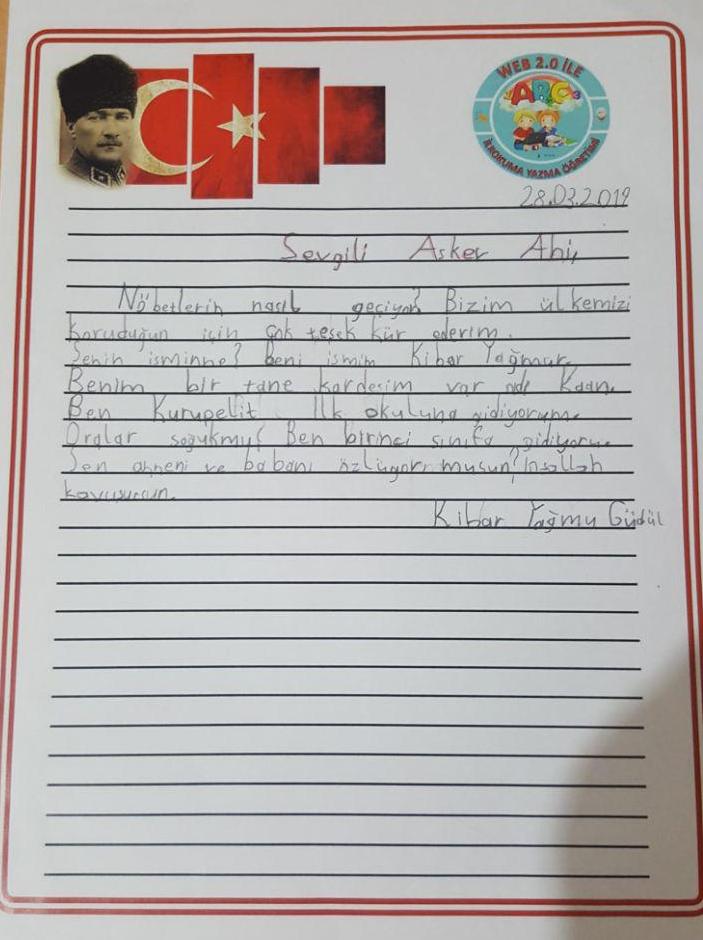 WEB 2.0 İLE
ABC
İLKOKUMA YAZMA ÖĞRETİMİ
28.03.2019
Sevgili Asker Abi,
Nöbetlerin nasıl geçiyor? Bizim ülkemizi
koruduğun için çok teşek kür ederim.
Senin isminne? Beni ismim Kibar Yağmur.
Benim bir tane kardeşim var Kaan.
Ben Kurupelit İlk okuluna gidiyorum.
Oralar soğukmu? Ben birinci sınıfa gidiyoru.
Sen anneni ve babanı özlüyormusun? İnşallah
kavuşursun.
Kibar Yağmu Güdül